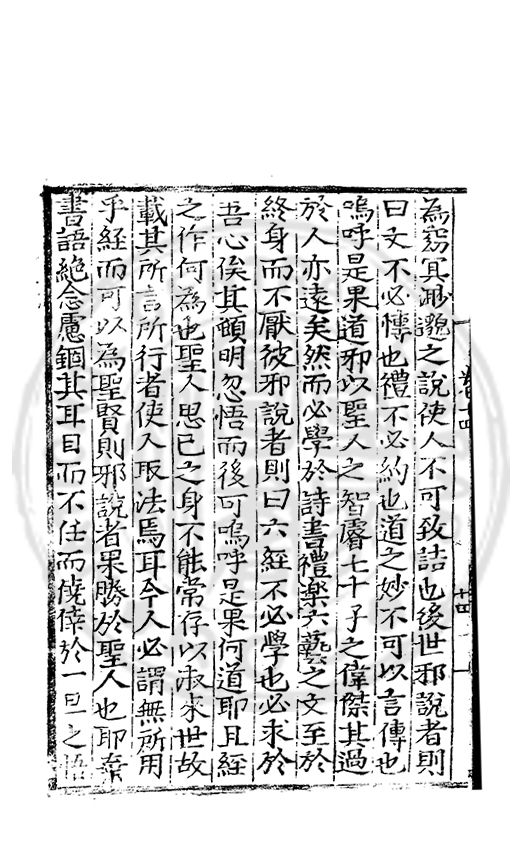 為窈冥眇邈之說使人不可致詰也後世邪說者則
曰文不必愽也禮不必約也道之妙不可以言傳也
嗚呼是果道邪以聖人之智睿七十子之偉傑其過
於人亦遠矣然而必學於詩書禮樂六藝之文至於
終身而不厭彼邪說者則曰六經不必學也必求於
吾心俟其頓明忽悟而後可嗚呼是果何道耶且經
之作何為也聖人思已之身不能常存以淑來世故
載其所言所行者使人取法焉耳今人必謂無所用
乎經而可以為聖賢則邪說者果勝於聖人也耶棄
書語絕念慮錮其耳目而不任而僥倖於一旦之悟
卷十四
十四